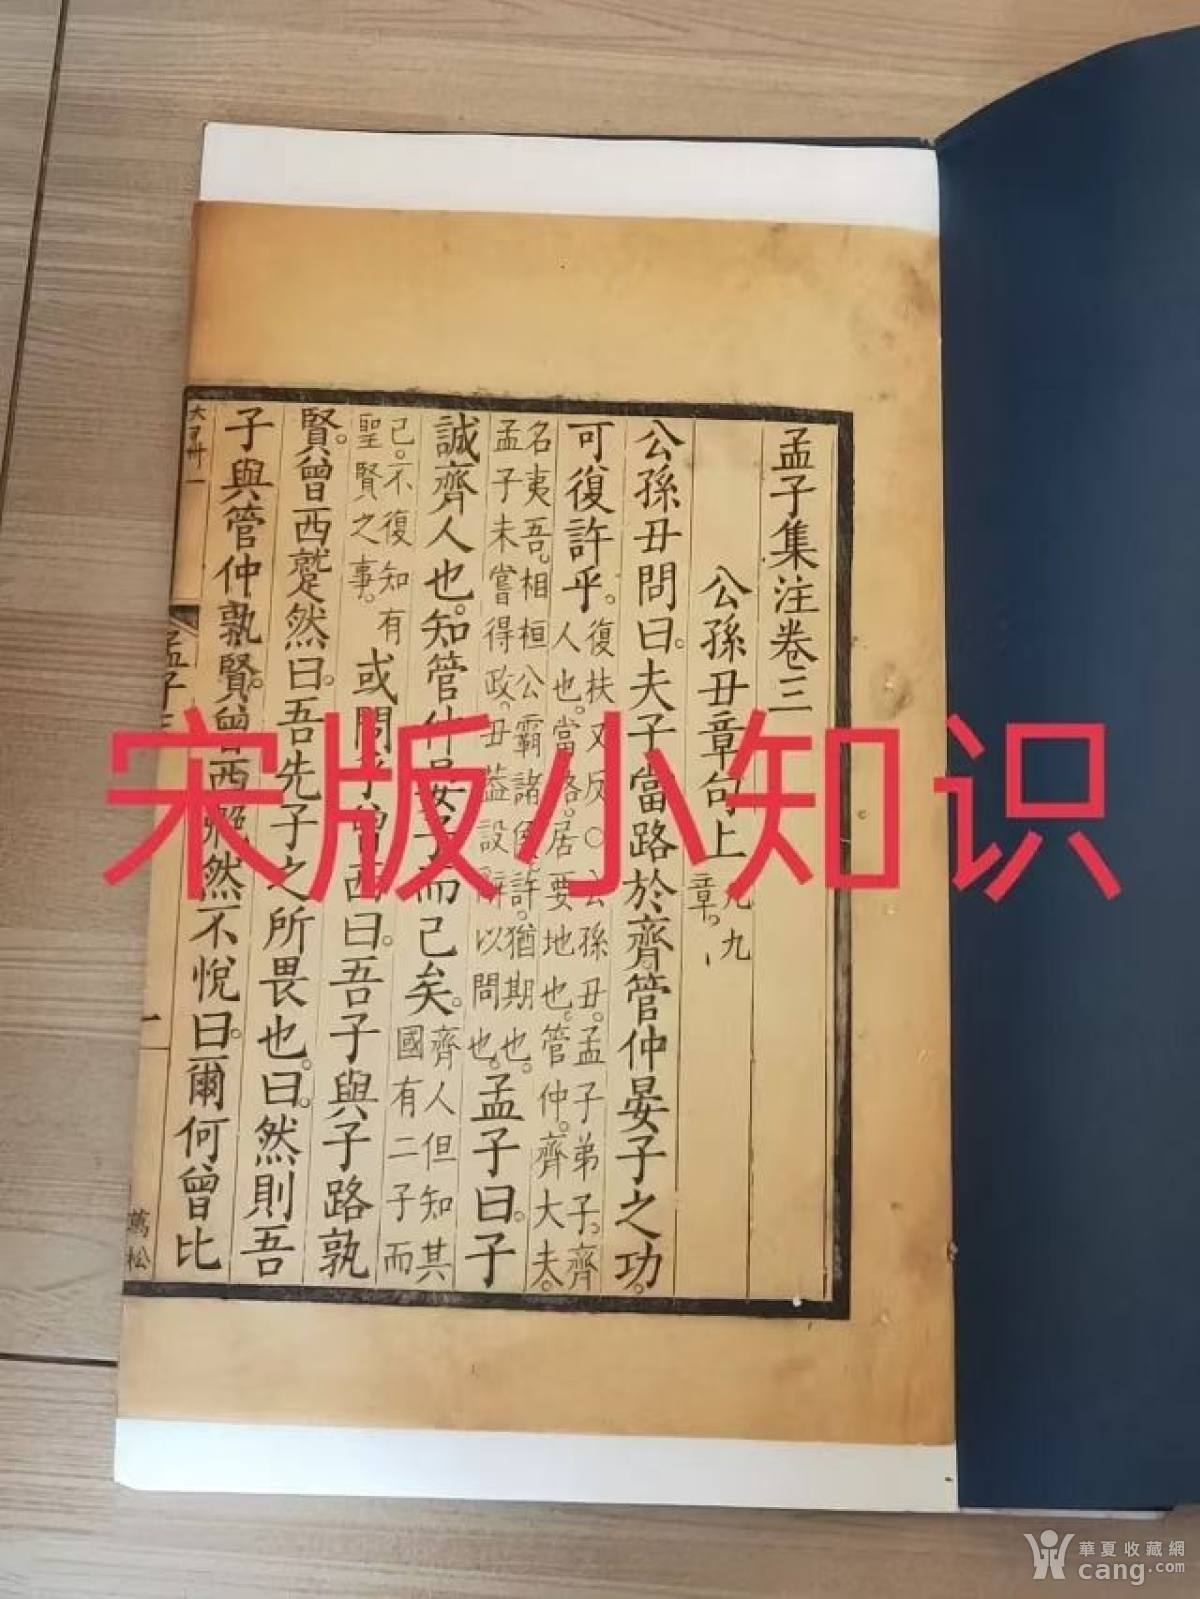 孟子集注卷三
公孫丑章句上
凡九
章。
公孫丑問曰。夫子當路於齊。管仲晏子之功。
可復許乎。
復扶又反〇公孫丑。孟子弟子。齊
人也。當路。居要地也。管仲。齊大夫。
名夷吾。相桓公霸諸侯。許。猶期也。
孟子未嘗得政。丑蓋設辭以問也。
孟子曰。子
誠齊人也。知管仲晏子而已矣。
齊人但知其
國有二子而
已。不復知有
聖賢之事。
或問乎曾西曰。吾子與子路孰
賢。曾西蹵然曰。吾先子之所畏也。曰。然則吾
子與管仲孰賢。曾西艴然不悅曰。爾何曾比
孟子三
一
萬松
宋版小知识
華夏收藏網
cang.com